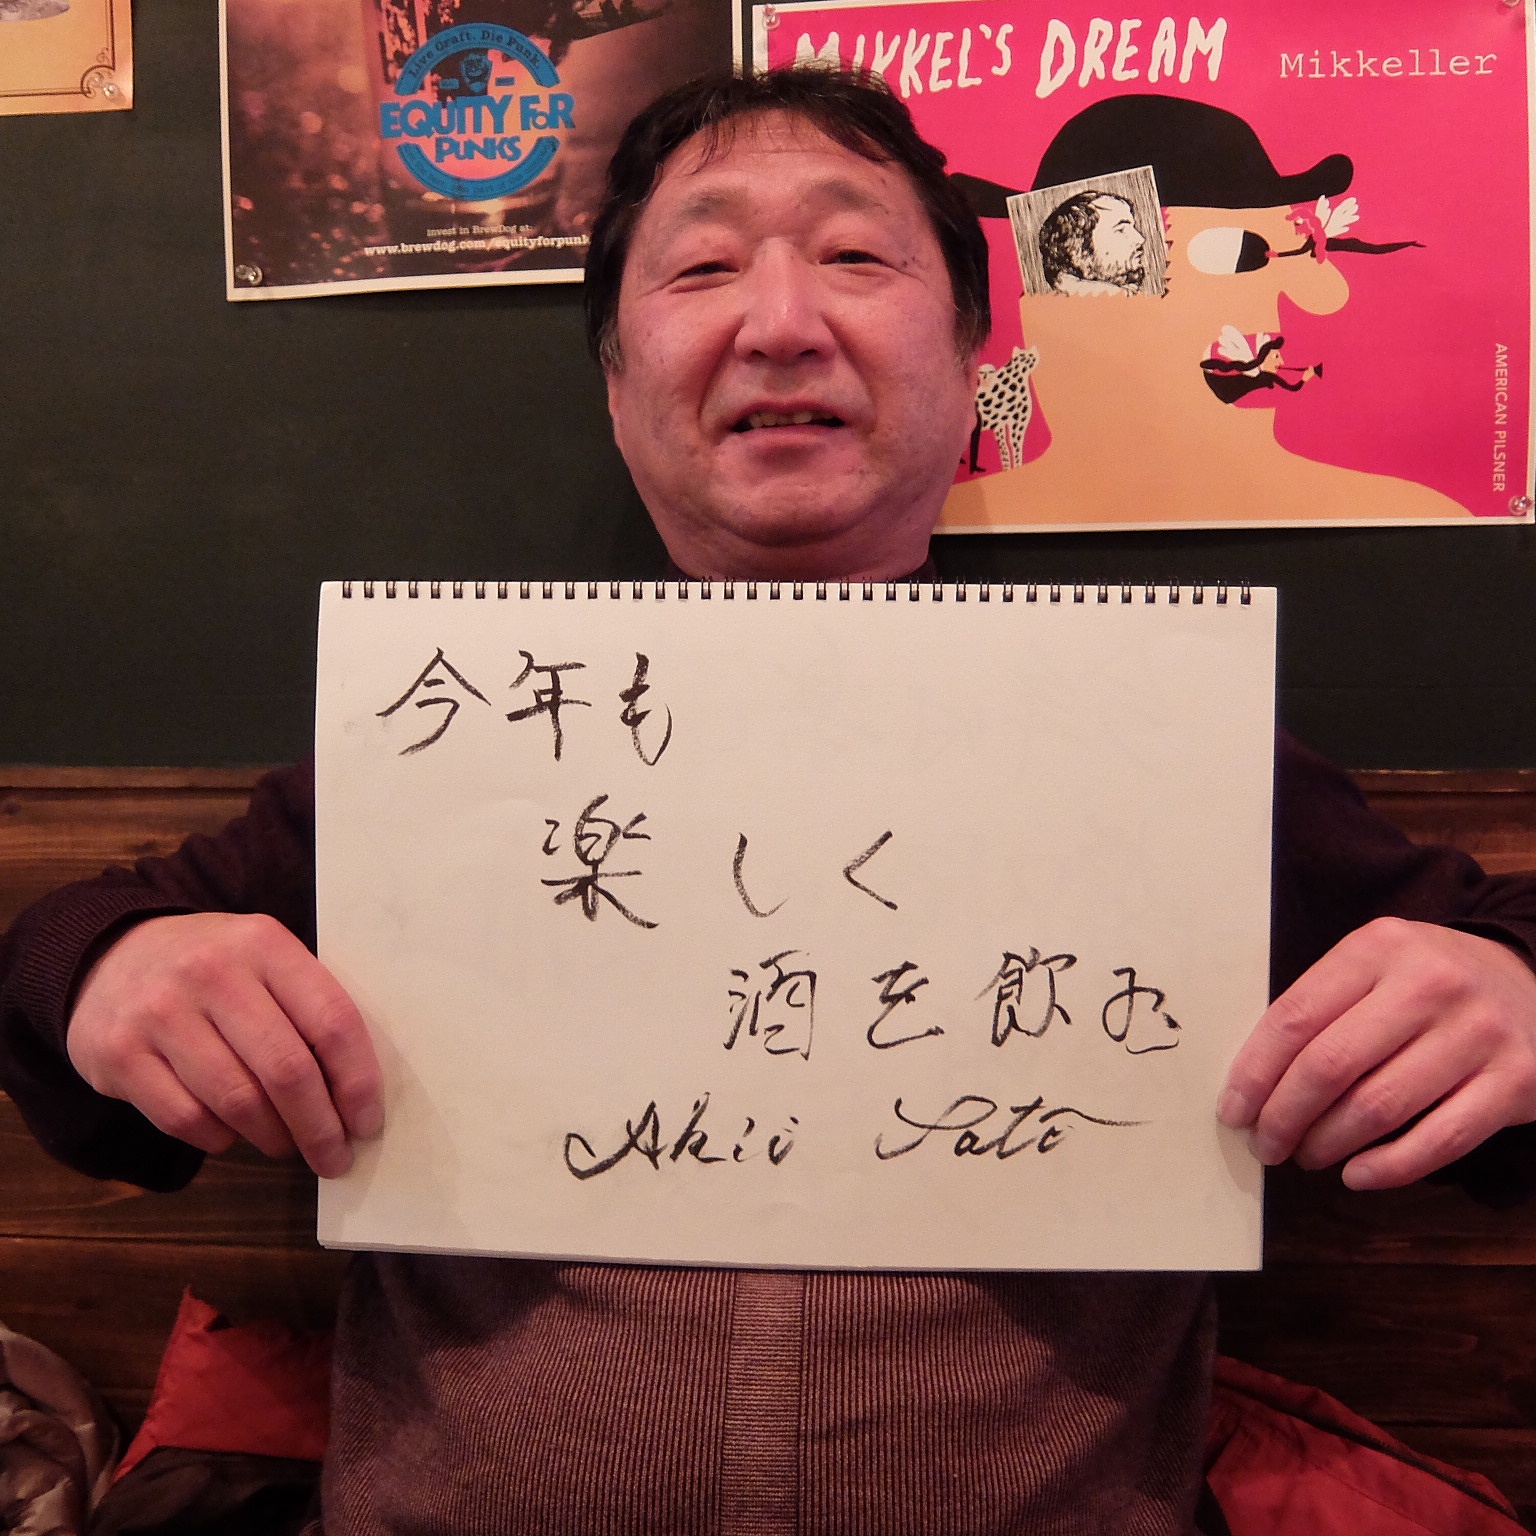 Live Craft. Die Punk.
EQUITY FOR
PUNKS
Invest in BrewDog at:
www.brewdog.com/equityforpunk
MIKKEL'S DREAM
Mikkeller
AMERICAN PILSNER
今年も
楽しく
酒を飲む
Akio Sato